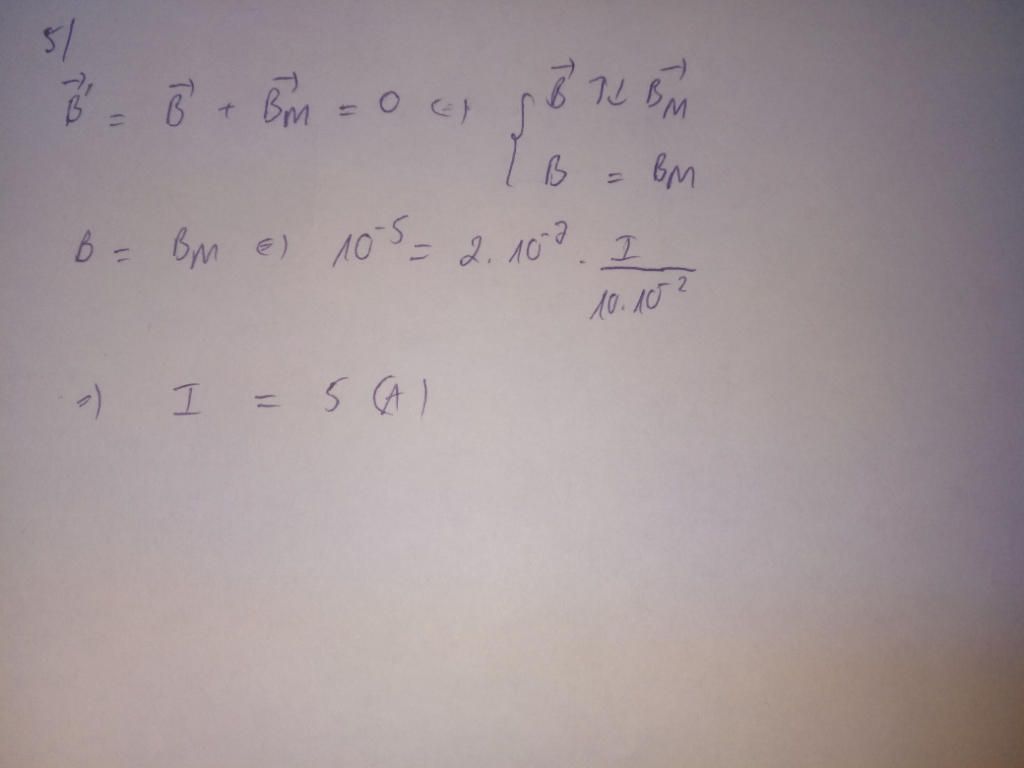 5/
B⃗' = B⃗ + B⃗M = 0 ⇔ { B⃗ ↑↓ B⃗M
B = BM
B = BM ⇔ 10⁻⁵ = 2.10⁻⁷ . I / 10.10⁻²
⇒ I = 5 (A)